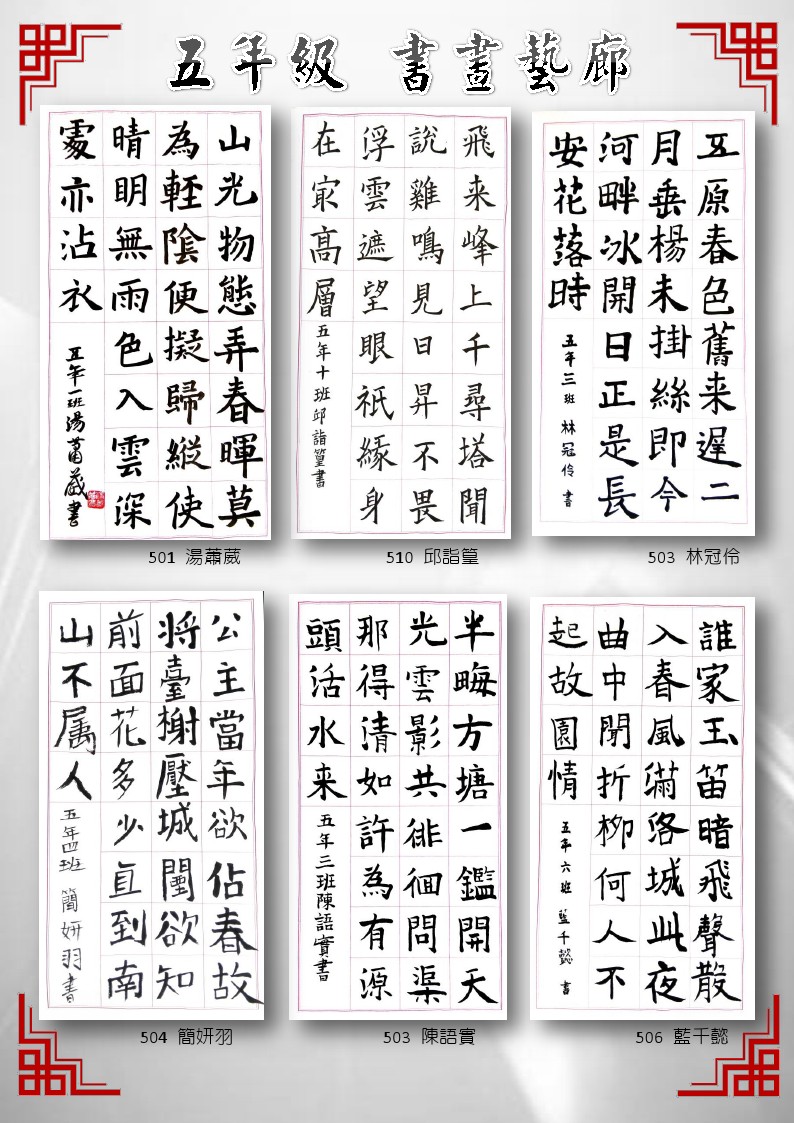 五年級 書畫藝廊
山光物態弄春暉莫
為輕陰便擬歸縱使
晴明無雨色入雲深
處亦沾衣
五年一班湯蕭葳書
501 湯蕭葳
飛来峰上千尋塔聞
説雞鳴見日昇不畏
浮雲遮望眼祇緣身
在冣高層
五年十班邱詣篁書
510 邱詣篁
五原春色舊来遲二
月垂楊未掛絲即今
河畔冰開日正是長
安花落時
五年三班 林冠伶 書
503 林冠伶
公主當年欲佔春故
将臺榭壓城闉欲知
前面花多少直到南
山不属人
五年四班 簡妍羽書
504 簡妍羽
半畮方塘一鑑開天
光雲影共徘徊問渠
那得清如許為有源
頭活水来
五年三班陳語實書
503 陳語實
誰家玉笛暗飛聲散
入春風滿洛城此夜
曲中聞折柳何人不
起故園情
五年六班 藍千懿 書
506 藍千懿